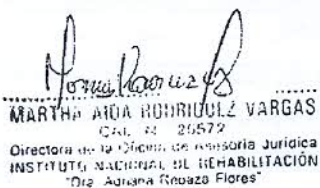 MARTHA AIDA RODRIGUEZ VARGAS
CAL N 26572
Directora de la Oficina de Asesoria Jurídica
INSTITUTO NACIONAL DE REHABILITACIÓN
"Dra. Adriana Rebaza Flores"